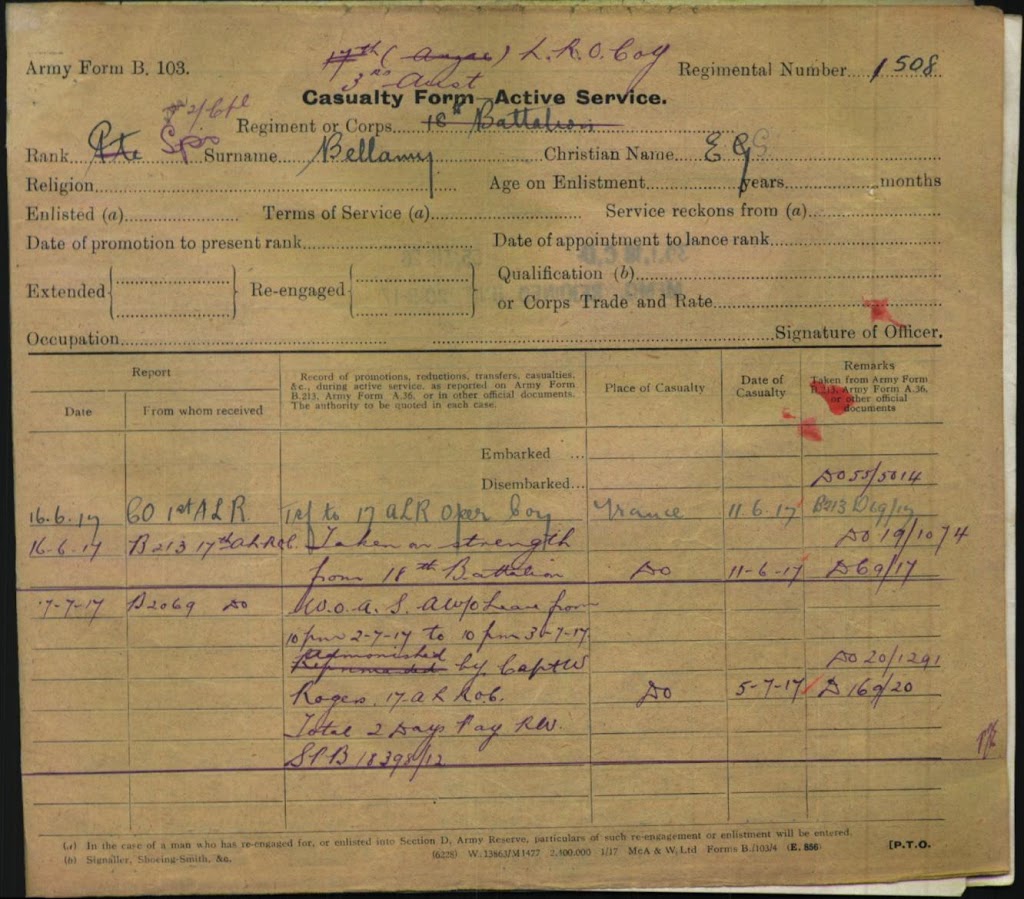 17th (Anzac) L.R.O. Coy
Army Form B. 103.
3rd Aust
Regimental Number 1508
Casualty Form—Active Service.
2/Cpl
Regiment or Corps 18th Battalion
Rank Pte Spr Surname Bellamy Christian Name E G
Religion Age on Enlistment years months
Enlisted (a) Terms of Service (a) Service reckons from (a)
Date of promotion to present rank Date of appointment to lance rank
Extended Re-engaged Qualification (b)
or Corps Trade and Rate
Occupation Signature of Officer.
Report
Date From whom received
Record of promotions, reductions, transfers, casualties,
&c., during active service, as reported on Army Form
B.213, Army Form A.36, or in other official documents.
The authority to be quoted in each case.
Place of Casualty
Date of
Casualty
Remarks
Taken from Army Form
B.213, Army Form A.36,
or other official
documents
Embarked ...
Disembarked... DO55/5014
16.6.17 CO 1st A L R. Tsf to 17 ALR Oper Coy France 11.6.17 B213 D19/17
16-6-17 B213 17th A.L.R.O.C. Taken on strength DO 19/1074
from 18th Battalion DO 11-6-17 D69/17
7-7-17 B2069 DO W.O.A.S. AW/O Leave from
10 pm 2-7-17 to 10 pm 3-7-17
Admonished
Reprimanded by Capt W DO 20/1291
Rogers, 17 A L R.O.C. DO 5-7-17 D 169/20
Total 2 Days Pay R.W.
18398/12
(a) In the case of a man who has re-engaged for, or enlisted into Section D, Army Reserve, particulars of such re-engagement or enlistment will be entered.
(b) Signaller, Shoeing-Smith, &c. (6228) W. 13863/M1477 2,100,000 1/17 McA & W, Ltd Forms B./103/4 (E. 856) [P.T.O.